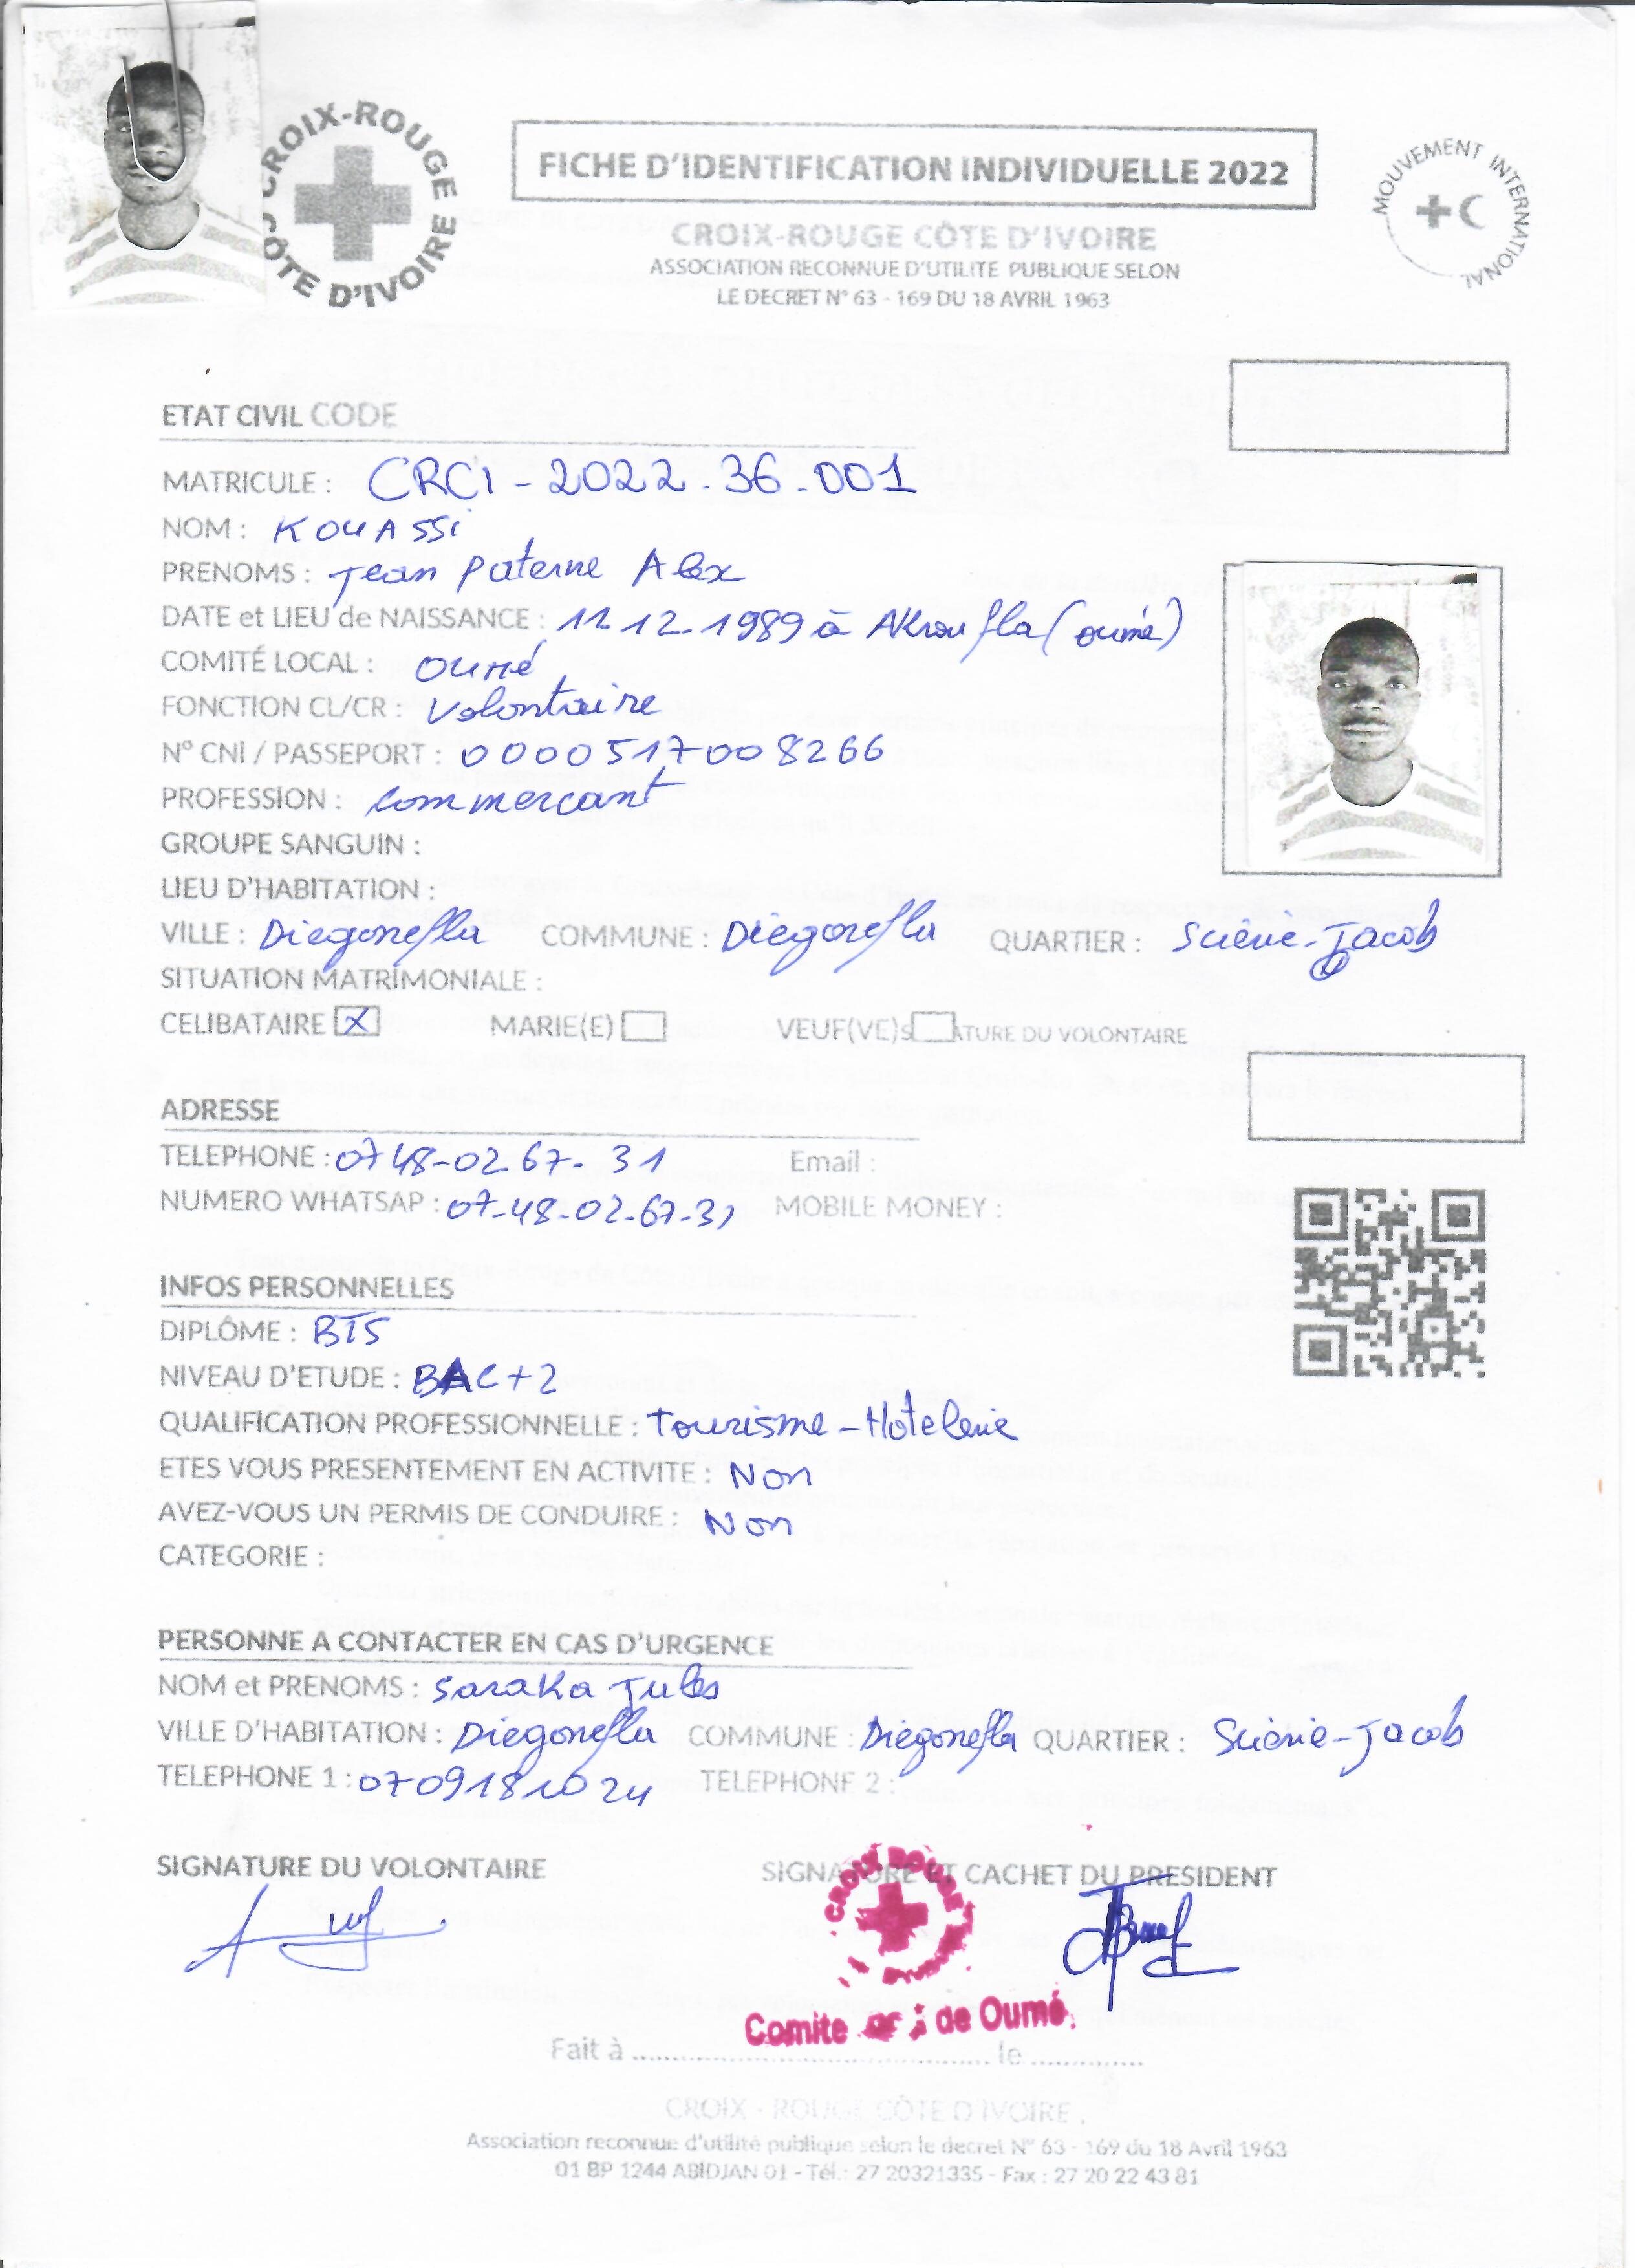 CROIX-ROUGE CÔTE D'IVOIRE
FICHE D'IDENTIFICATION INDIVIDUELLE 2022
MOUVEMENT INTERNATIONAL
CROIX-ROUGE CÔTE D'IVOIRE
ASSOCIATION RECONNUE D'UTILITE PUBLIQUE SELON
LE DECRET N° 63 - 169 DU 18 AVRIL 1963
ETAT CIVIL CODE
MATRICULE : CRCI - 2022.36.001
NOM : KOUASSi
PRENOMS : Jean Paterne Alex
DATE et LIEU de NAISSANCE : 11.12.1989 à Akroufla (oumé)
COMITÉ LOCAL : Oumé
FONCTION CL/CR : Volontaire
N° CNI / PASSEPORT : 0000517008266
PROFESSION : Commercant
GROUPE SANGUIN :
LIEU D'HABITATION :
VILLE : Diegonefla COMMUNE : Diégonefla QUARTIER : Sciérie-Jacob
SITUATION MATRIMONIALE :
CELIBATAIRE X MARIE(E) VEUF(VE) S ATURE DU VOLONTAIRE
ADRESSE
TELEPHONE : 0748-02.67.31 Email :
NUMERO WHATSAP : 07-48-02-67-31 MOBILE MONEY :
INFOS PERSONNELLES
DIPLÔME : BTS
NIVEAU D'ETUDE : BAC+2
QUALIFICATION PROFESSIONNELLE : Tourisme-Hôtelerie
ETES VOUS PRESENTEMENT EN ACTIVITE : Non
AVEZ-VOUS UN PERMIS DE CONDUIRE : Non
CATEGORIE :
PERSONNE A CONTACTER EN CAS D'URGENCE
NOM et PRENOMS : Saraka Jules
VILLE D'HABITATION : Diégonefla COMMUNE : Diégonefla QUARTIER : Sciérie-Jacob
TELEPHONE 1 : 0709181024 TELEPHONE 2 :
SIGNATURE DU VOLONTAIRE SIGNATURE ET CACHET DU PRESIDENT
CROIX ROUGE
Comite de Oumé
Fait à .......... le ..........
CROIX - ROUGE CÔTE D'IVOIRE
Association reconnue d'utilité publique selon le decret N° 63 - 169 du 18 Avril 1963
01 BP 1244 ABIDJAN 01 - Tél.: 27 20321335 - Fax : 27 20 22 43 81